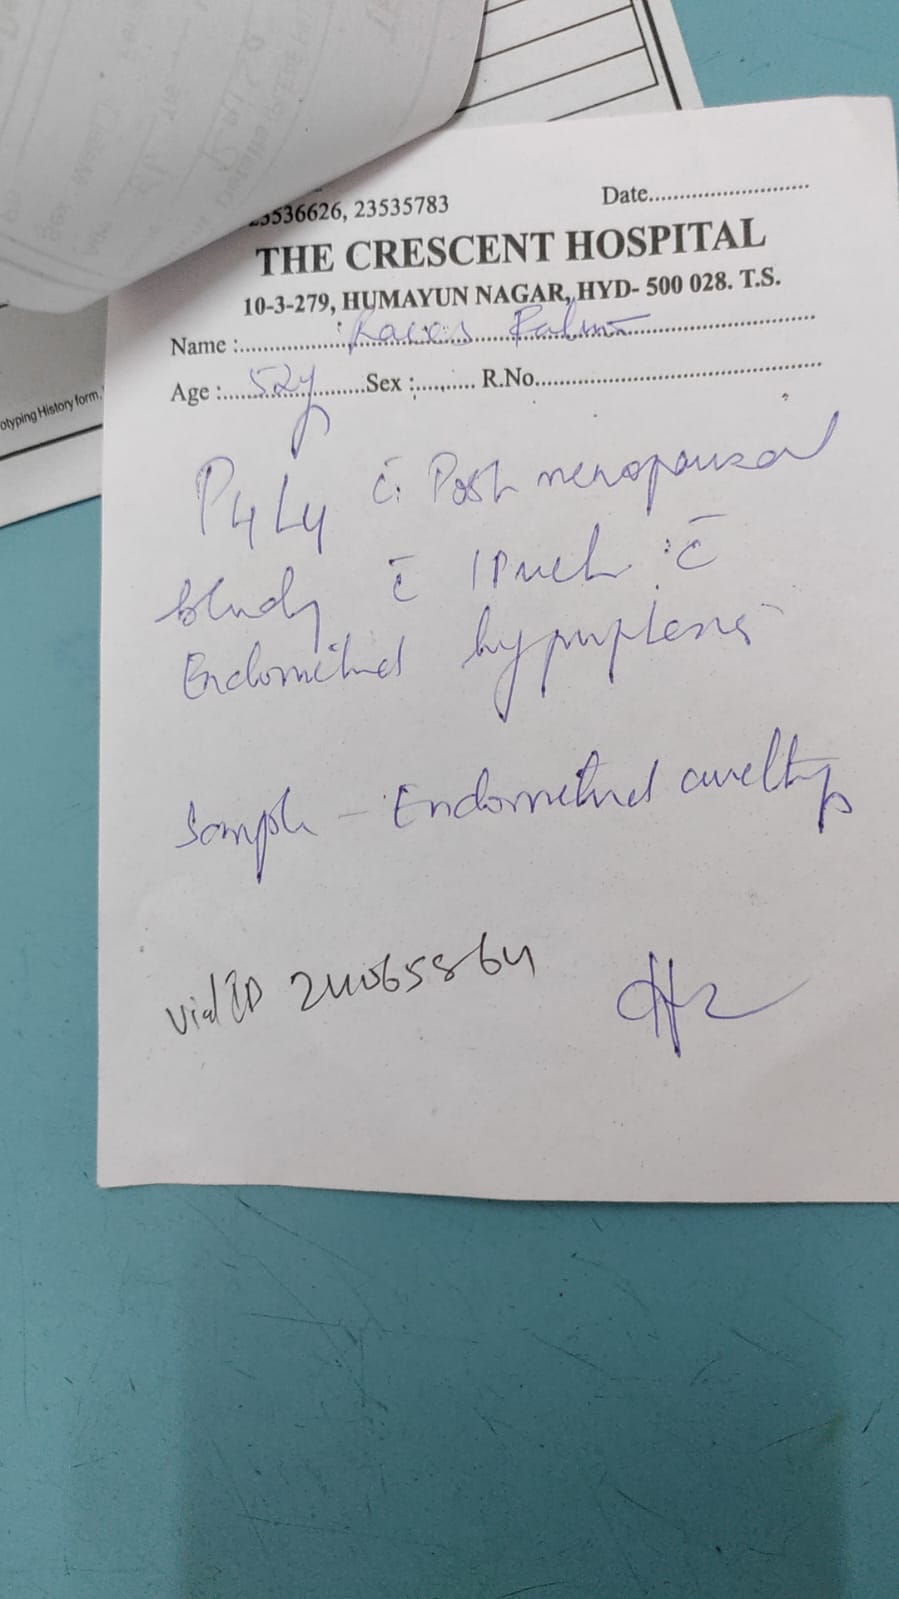 23536626, 23535783
Date..........................
THE CRESCENT HOSPITAL
10-3-279, HUMAYUN NAGAR, HYD- 500 028. T.S.
Name :
Age : 52y Sex :........... R.No.............................................
P4L4 c̄ Post menopausal
bleeding c̄ c̄
Endometrial hyperplasia
Sample - Endometrial curettings
Vial ID 24065864
otyping History form.